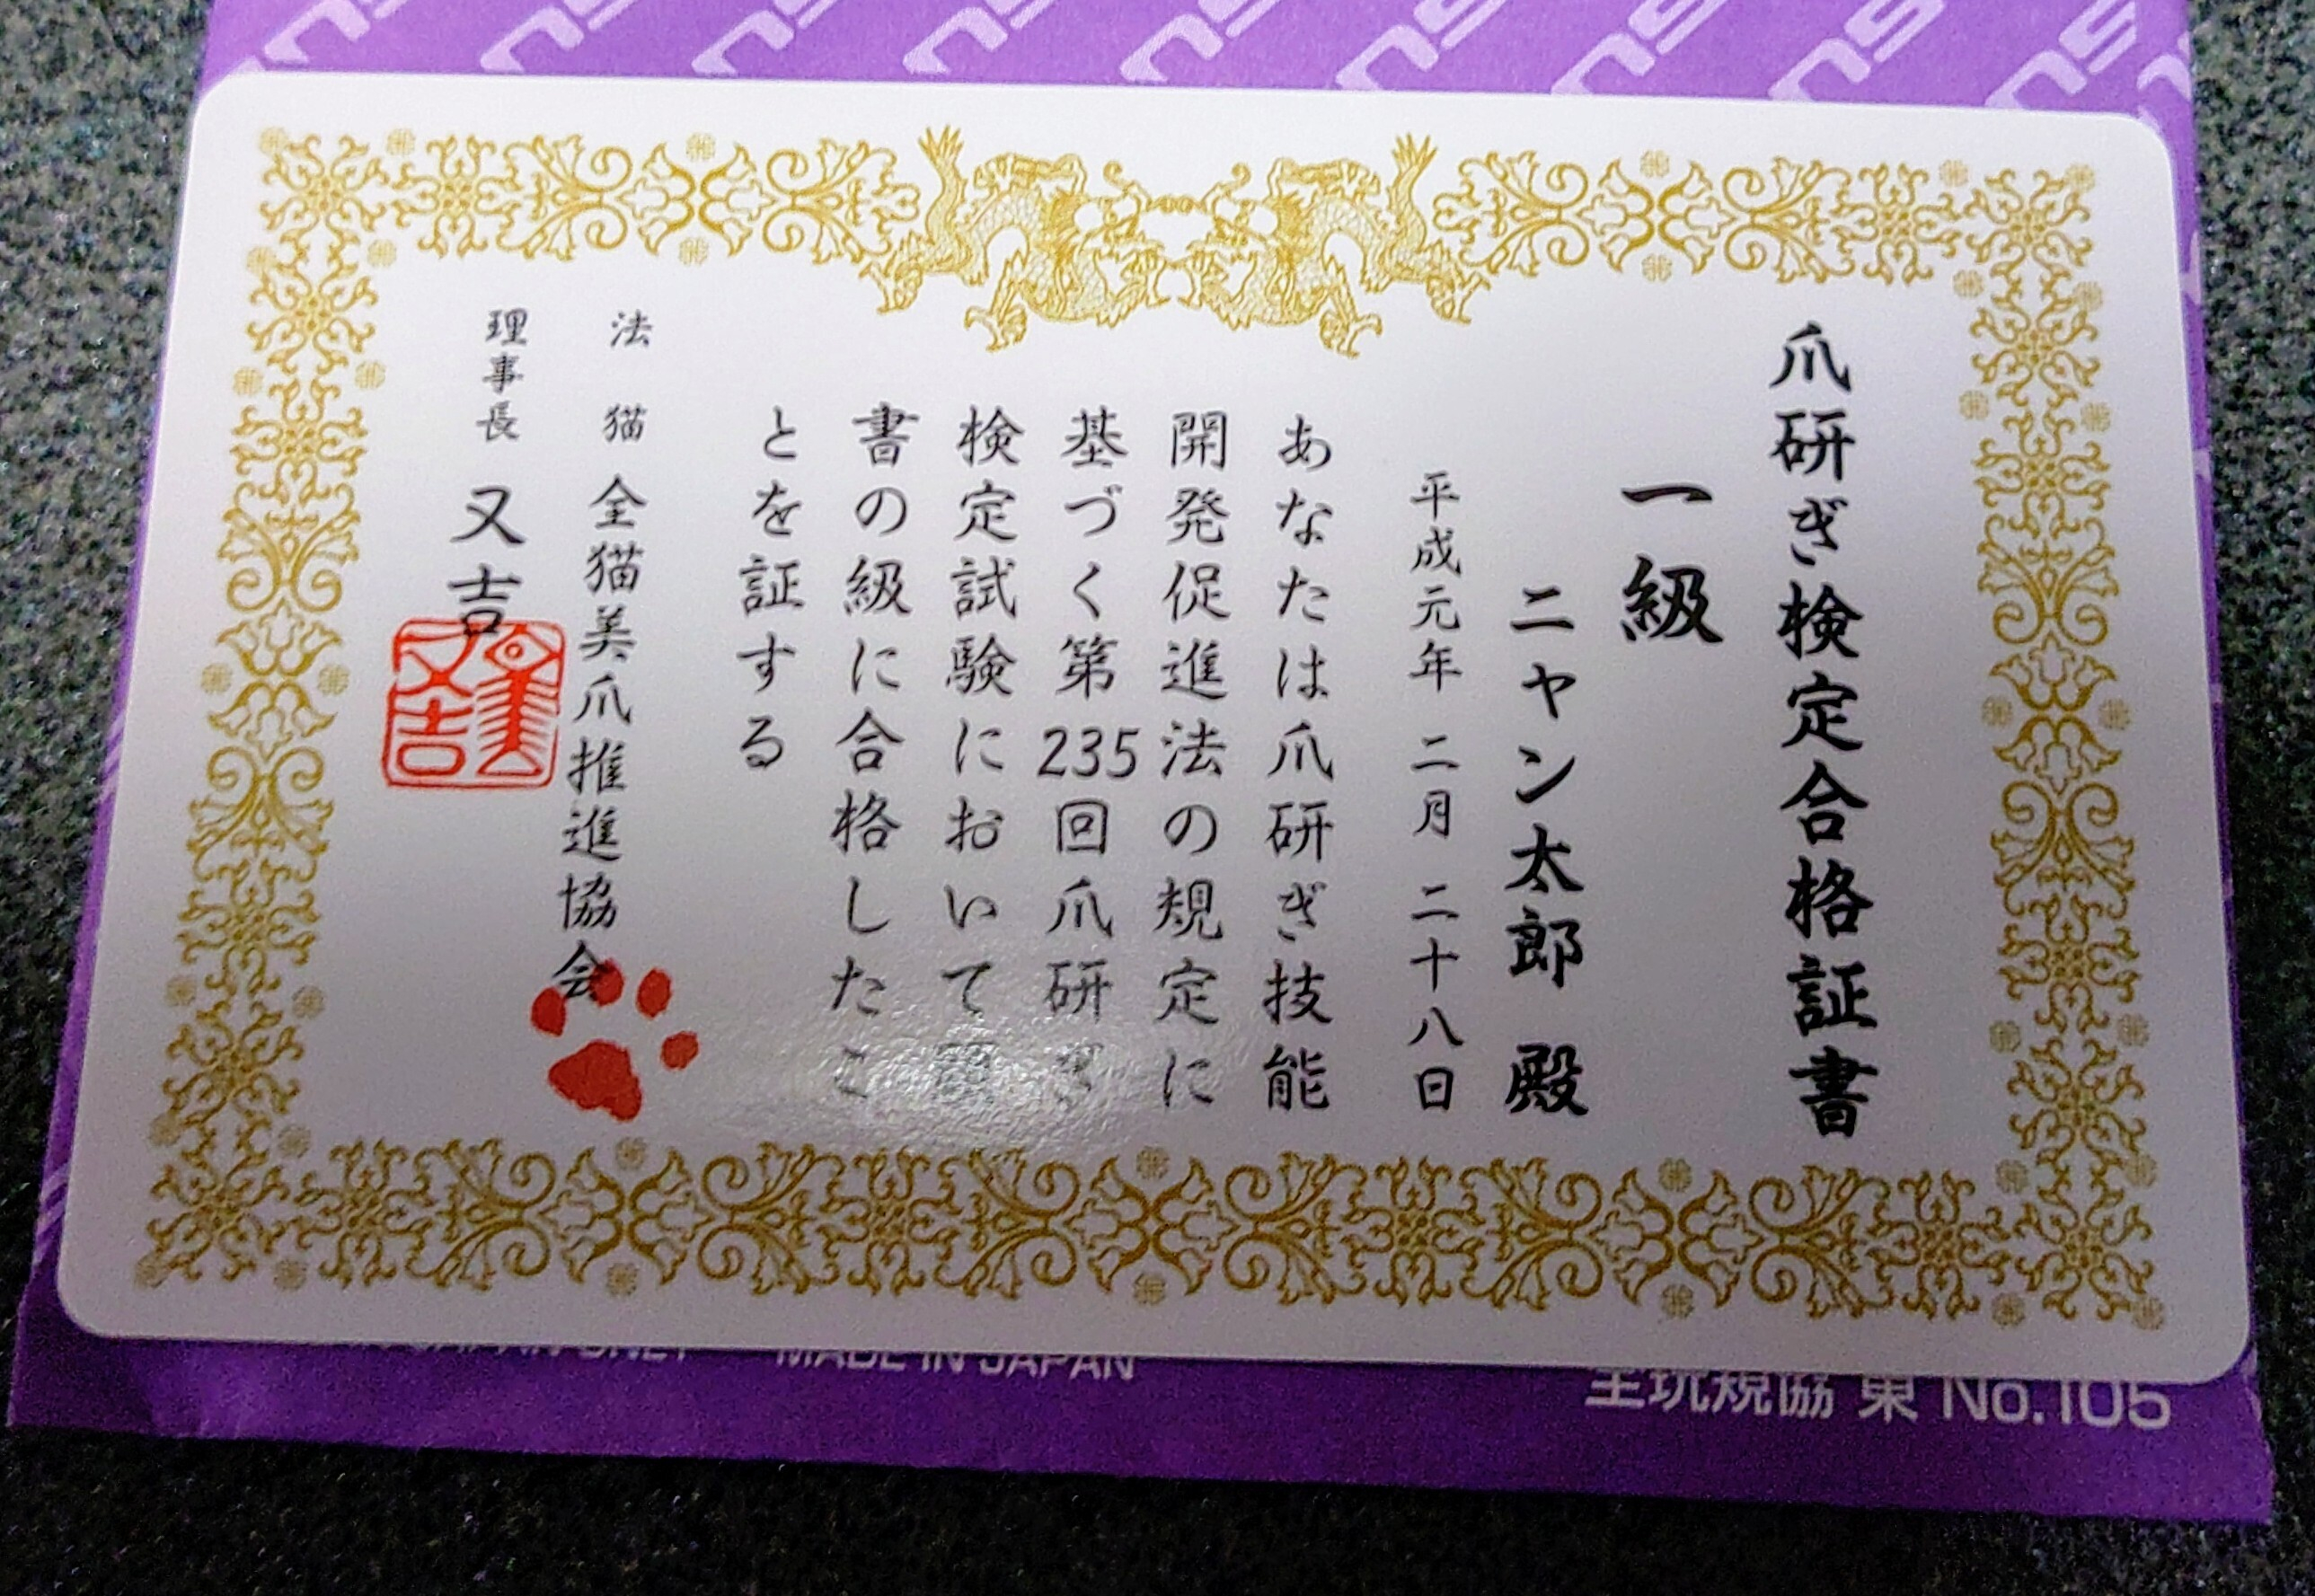 爪研ぎ検定合格証書
一級
ニャン太郎 殿
平成元年 二月 二十八日
あなたは爪研ぎ技能
開発促進法の規定に
基づく第235回爪研ぎ
検定試験において同
書の級に合格したこ
とを証する
法猫 全猫美爪推進協会
理事長 又吉
又吉
MADE IN JAPAN
全玩規協 東 No.105